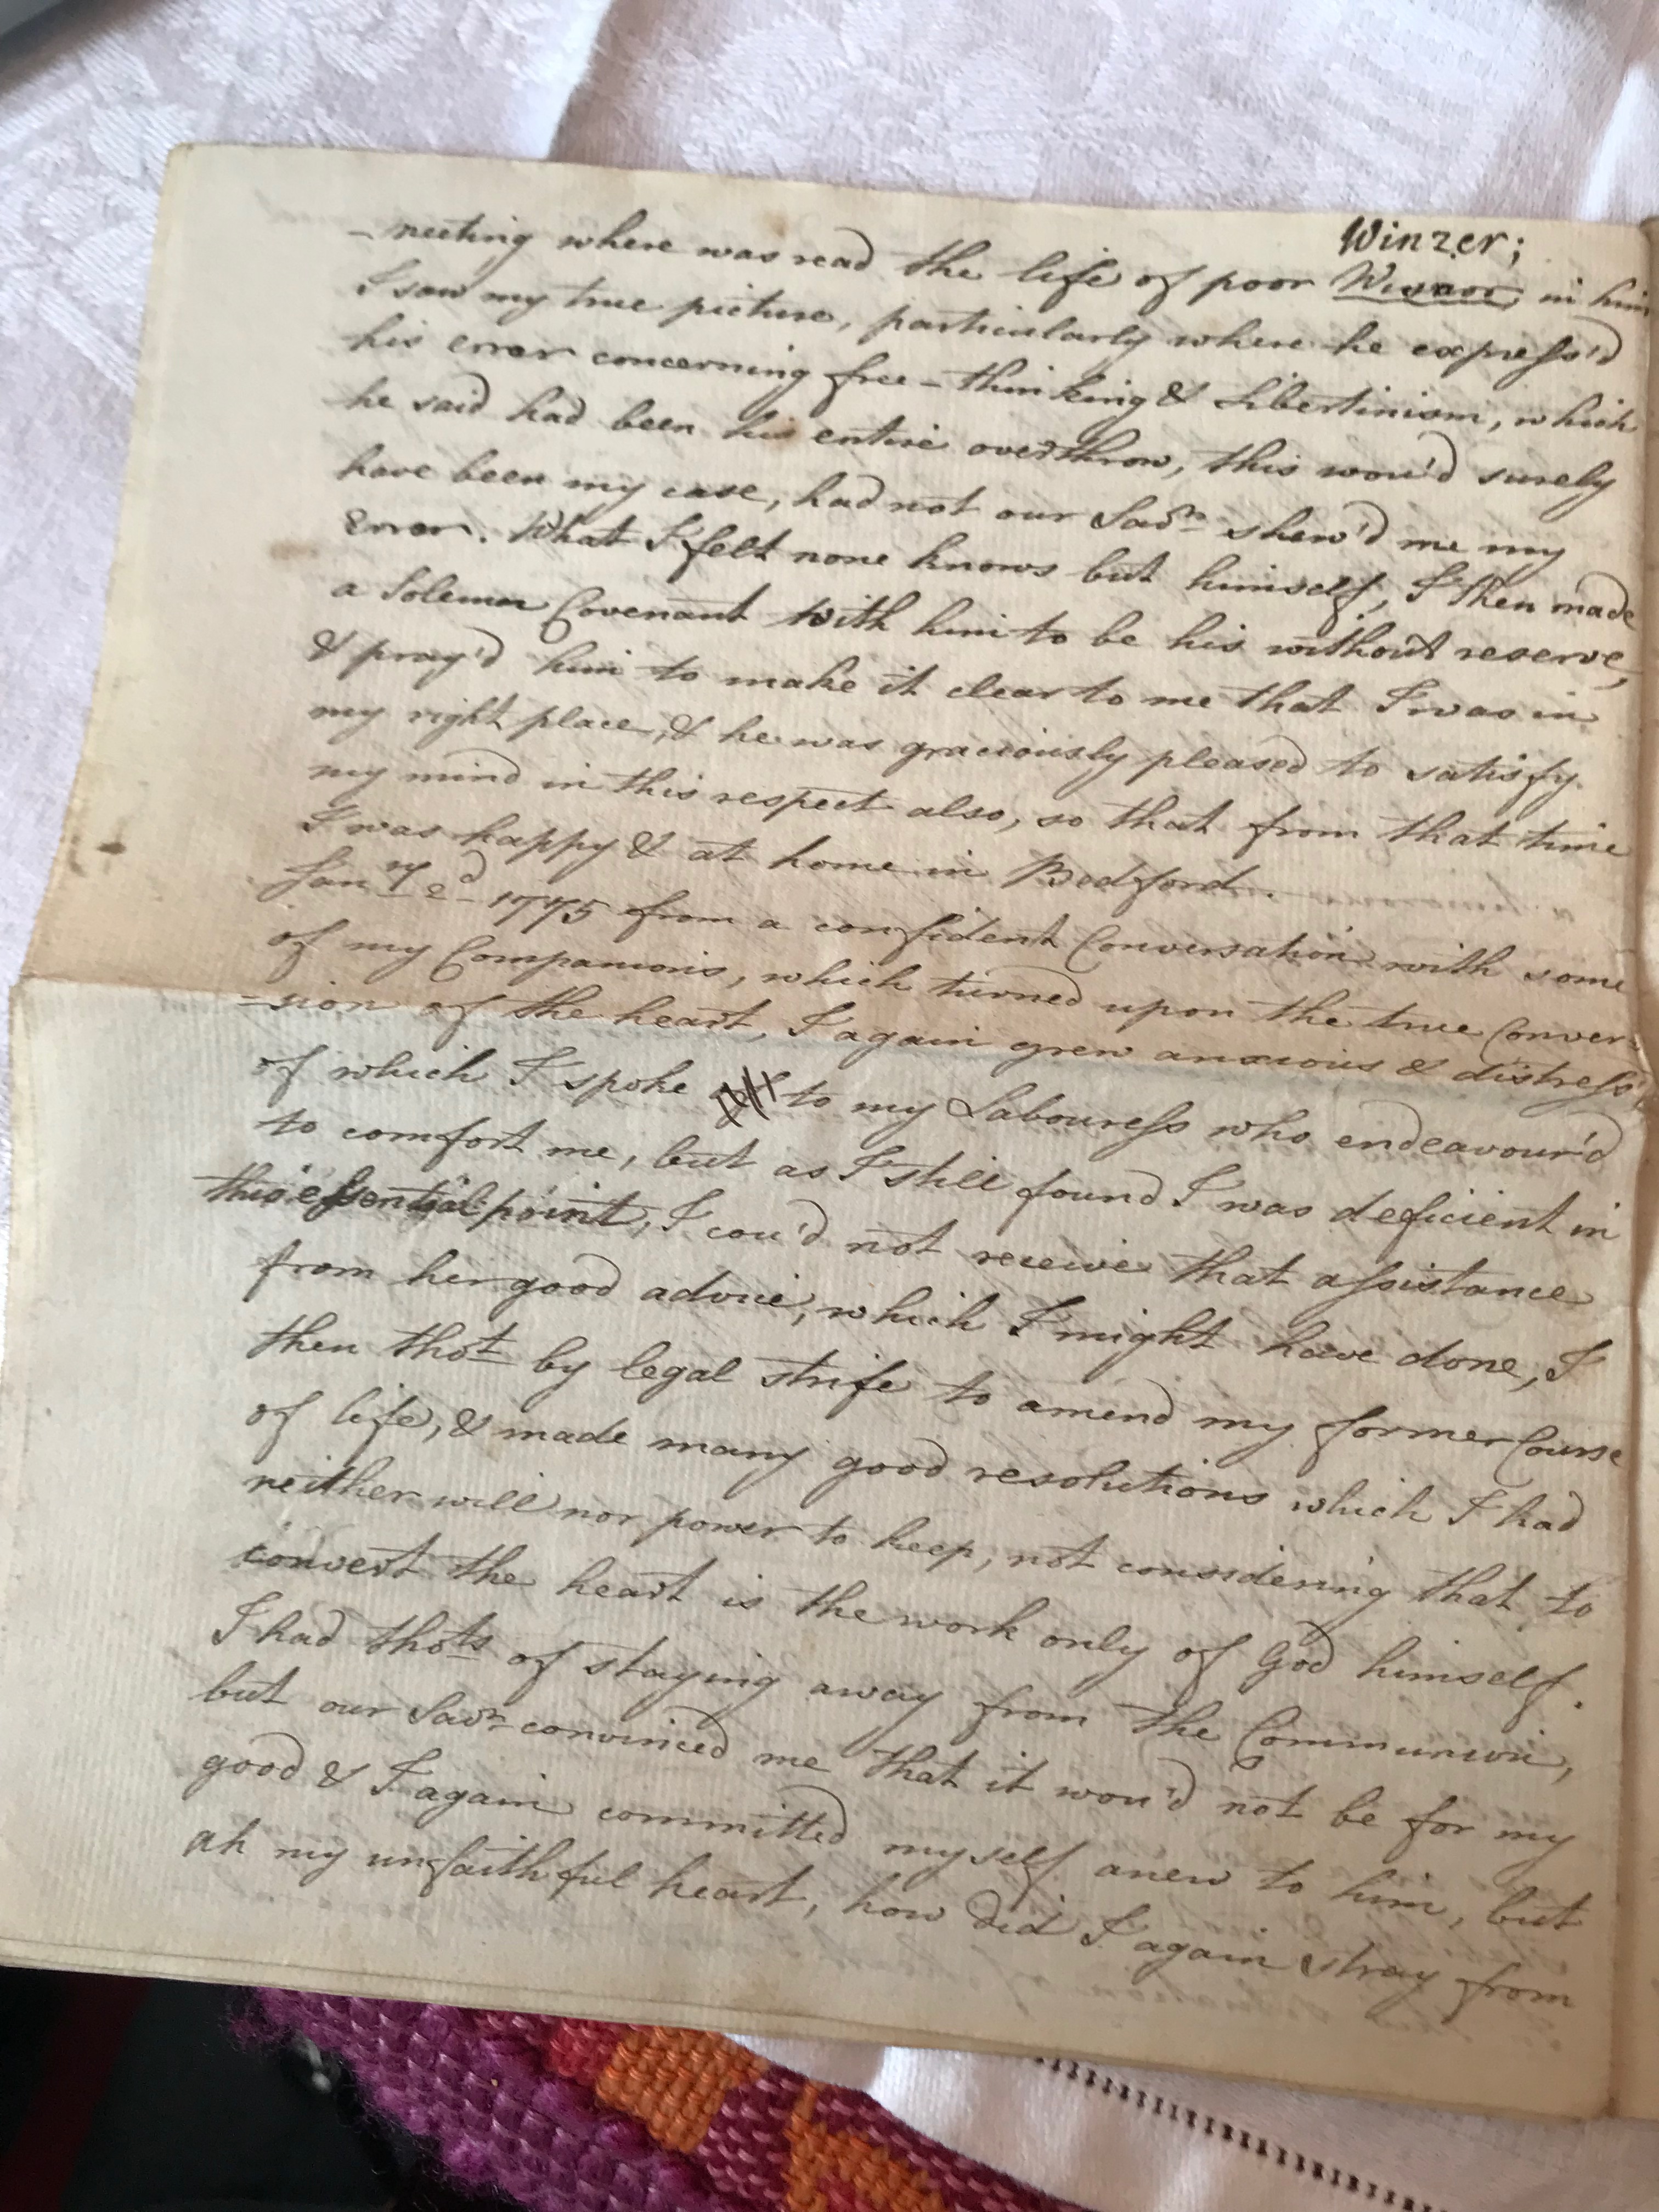 Winzer;
-meeting where was read the life of poor Wisnor, in him
I saw my true picture, particularly where he express'd
his error concerning free-thinking & Libertinism, which
he said had been his entire overthrow, this wou'd surely
have been my case, had not our Savr. shew'd me my
Error. What I felt none knows but himself, I then made
a Solemn Covenant with him to be his without reserve,
& pray'd him to make it clear to me that I was in
my right place, & he was graciously pleased to satisfy
my mind in this respect also, so that from that time
I was happy & at home in Bedford.
Jany. 2d. 1775 from a confident Conversation with some
of my Companions, which turned upon the true Conver=
=sion of the heart, I again grew anxious & distress'd
of which I spoke to my Labouress who endeavour'd
to comfort me, but as I still found I was deficient in
this essential point, I cou'd not receive that assistance
from her good advice, which I might have done, I
then thot. by legal strife to amend my former Course
of life, & made many good resolutions which I had
neither will nor power to keep, not considering that to
convert the heart is the work only of God himself.
I had thots. of staying away from the Communion,
but our Savr. convinced me that it wou'd not be for my
good & I again committed myself anew to him, but
ah my unfaithful heart, how did I again stray from